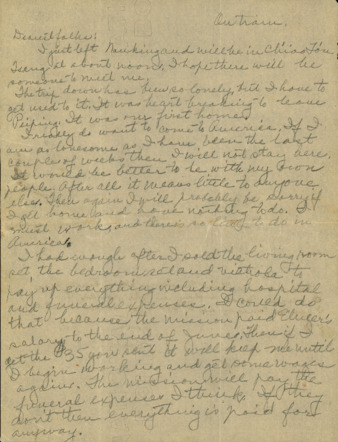 On train.
Dearest folks:
I just left Nanking and will be in
about noon. I hope there will be
someone to meet me.
The trip down has been so lonely, but I have to
get used to it. It was heart breaking to leave
Peiping. It was our first home.
I do want to come to America. If I
am as lonesome as I have been the last
couple of weeks then I will not stay here.
It would be better to be with my own
people. After all it means little to anyone
else. Then again I will probably be sorry if
I get home and have nothing to do. I
must work and there's so little to do in
America.
I had enough after I sold the living room
set the bedroom set and victrola to
pay up everything including hospital
and funeral expenses. I could do
that because the mission paid
salary to the end of June. Then if I
get the $35 you sent it will keep me until
I begin working and get some wages
again. The mission will pay the
funeral expenses I think. If they
don't then everything is paid for
anyway.